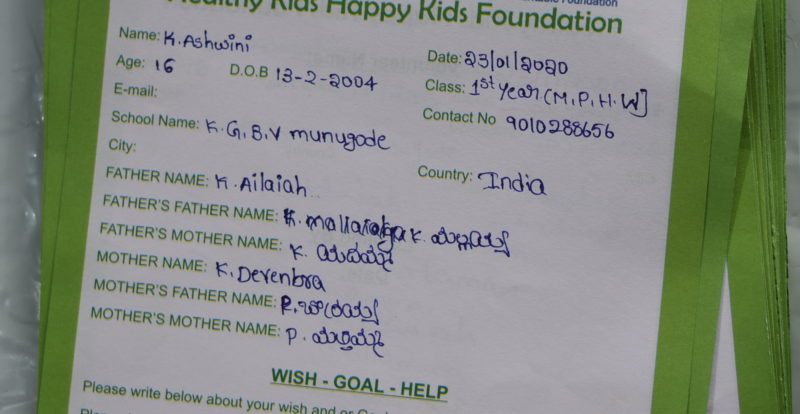 Foundation
Healthy Kids Happy Kids Foundation
Name: K.Ashwini
Date: 23/01/2020
Age: 16 D.O.B 13-2-2004
Class: 1st year (M.P.H.W]
E-mail:
Contact No 9010288656
School Name: K.G.B.V munugode
City:
Country: India
FATHER NAME: K.Ailaiah
FATHER'S FATHER NAME: K.
FATHER'S MOTHER NAME: K.
MOTHER NAME: K.Devenbra
MOTHER'S FATHER NAME:
MOTHER'S MOTHER NAME: P.
WISH - GOAL - HELP
Please write below about your wish and or